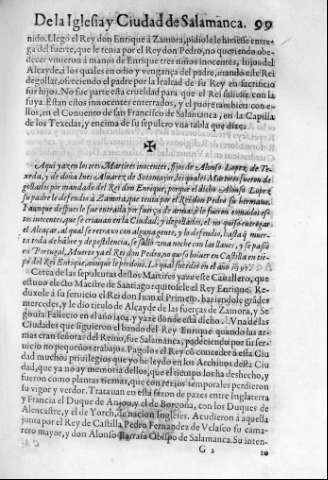 De la Iglesia y Ciudad de Salamanca. 99
nido. Llegó el Rey don Enrique à Zamora, pidiole le hiciesse entre-
ga del fuerte, que le tenia por el Rey don Pedro, no queriendo obe-
decer vinieron à manos de Enrique tres niños inocentes, hijos del
Alcayde, à los quales en odio y vengança del padre, mandò este Rei
degollar, ofreciendo el padre por la lealtad de su Rey en sacrificio
sus hijos. No fue parte esta crueldad para que el Rei saliesse con la
suya. Estan estos innocentes enterrados, y el padre tambien con e-
llos, en el Convento de san Francisco de Salamanca, en la Capilla
de los Texedas, y encima de su sepulcro vna tabla que dize:
Aqui yazen los tres Martires inocentes, fijos de Alonso Lopez de Te-
xeda, y de doña Ines Alvarez de Sotomayor, los quales Martires fueron de
gollados por mandado del Rei don Enrique, porque el dicho Alonso Lopez
su padre le defendio à Zamora, que tenia por el Rei don Pedro su hermano.
Y aunque despues le fue entrada por fuerça de armas, è le fueron tomados es-
tos inocentes, que se criauan en la Ciudad, y degollados, el no quiso entregar
el Alcaçar, al qual se retraxo con alguna gente, y lo defendio, hasta q̃ muer-
ta toda de hãbre y de pestilencia, se salio vna noche con las llaues, y se passò
a Portugal, Muerto ya el Rei don Pedro, no quiso boluer en Castilla en tie-
po del Rei Enrique, aunque le perdonò. Lo qual sucedio en el año
Cerca de las sepulturas destos Martires yaze este Cauallero, que
estuuo electo Maestre de Santiago quitosele el Rey Enrique. Re-
duxole à su seruicio el Rei don Iuan el Primero, haziendole grãdes
mercedes, y le dio titulo de Alcayde de las fuerças de Zamora, y Se
gouia Fallecio en el año 1404. y yaze donde està dicho. Vna de las
Ciudades que siguieron el bando del Rey Enrique quando las ar-
mas eran señoras del Reino, fue Salamanca, padeciendo por su ser-
uicio no pequeños trabajos. Pagolos el Rey cõ conceder à esta Ciu
dad muchos priuilegios que yo he leydo en los Archiuos desta Ciu
dad, que ya no ay memoria dellos, que el tiempo los ha deshecho, y
fueron como plantas tiernas, que con recios temporales perdieron
su vigor y verdor. Tratauan en esta sazon de pazes entre Inglaterra
y Francia el Duque de Anjou, y el de Borgoña, con los Duques de
Alencastre, y el de Yorch, de nacion Ingleses. Acudieron à aquella
junta por el Rey de Castilla Pedro Fernandez de Velasco su cama-
rero mayor, y don Alonso Barrasa Obispo de Salamanca. Su inten-
G 2
to